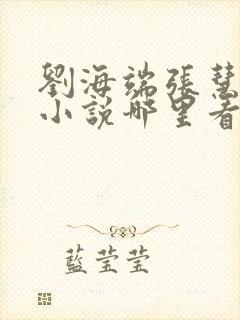 劉海端張慧
小説哪里看
藍莹莹